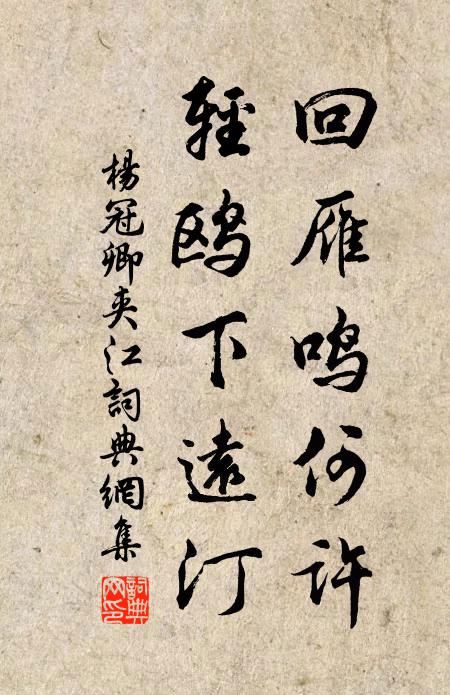 回雁鸣何许
輕鸥下遠汀
楊冠卿夾江詞典網集
詞典網印